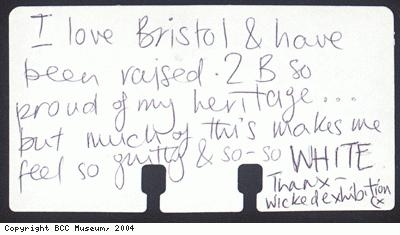 I love Bristol & have
been raised . 2 B so
proud of my heritage . . .
but much of this makes me
feel so guilty & so-so WHITE
Thanx -
wicked exhibition
x
Copyright BCC Museum, 2004